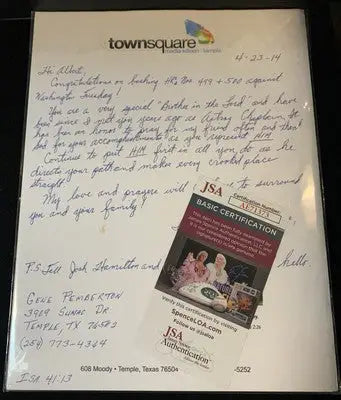 townsquare
media killeen | temple
4-23-14
Hi Albert,
Congratulations on bashing HRs No. 499 + 500 against
Washington Tuesday!
You are a very special "Brother in the Lord" and have
been since I met you years ago as Astros Chaplain. It
has been an honor to pray for my friend often and thank
God for your accomplishments as you represent HIM.
Continue to put HIM first in all you do as he
directs your path and makes every crooked place
straight!
My love and prayers will to surround
you and your family!
P.S. Tell Josh Hamilton and hello.
GENE PEMBERTON
TEMPLE, TX 76502
(254) 773-4364
ISA. 41:13
608 Moody • Temple, Texas 76504
-5252
JSA
Certification Number
BASIC CERTIFICATION
Verify this certification by visiting
SpenceLOA.com
Follow us @jsaloa
JSA
Authentication